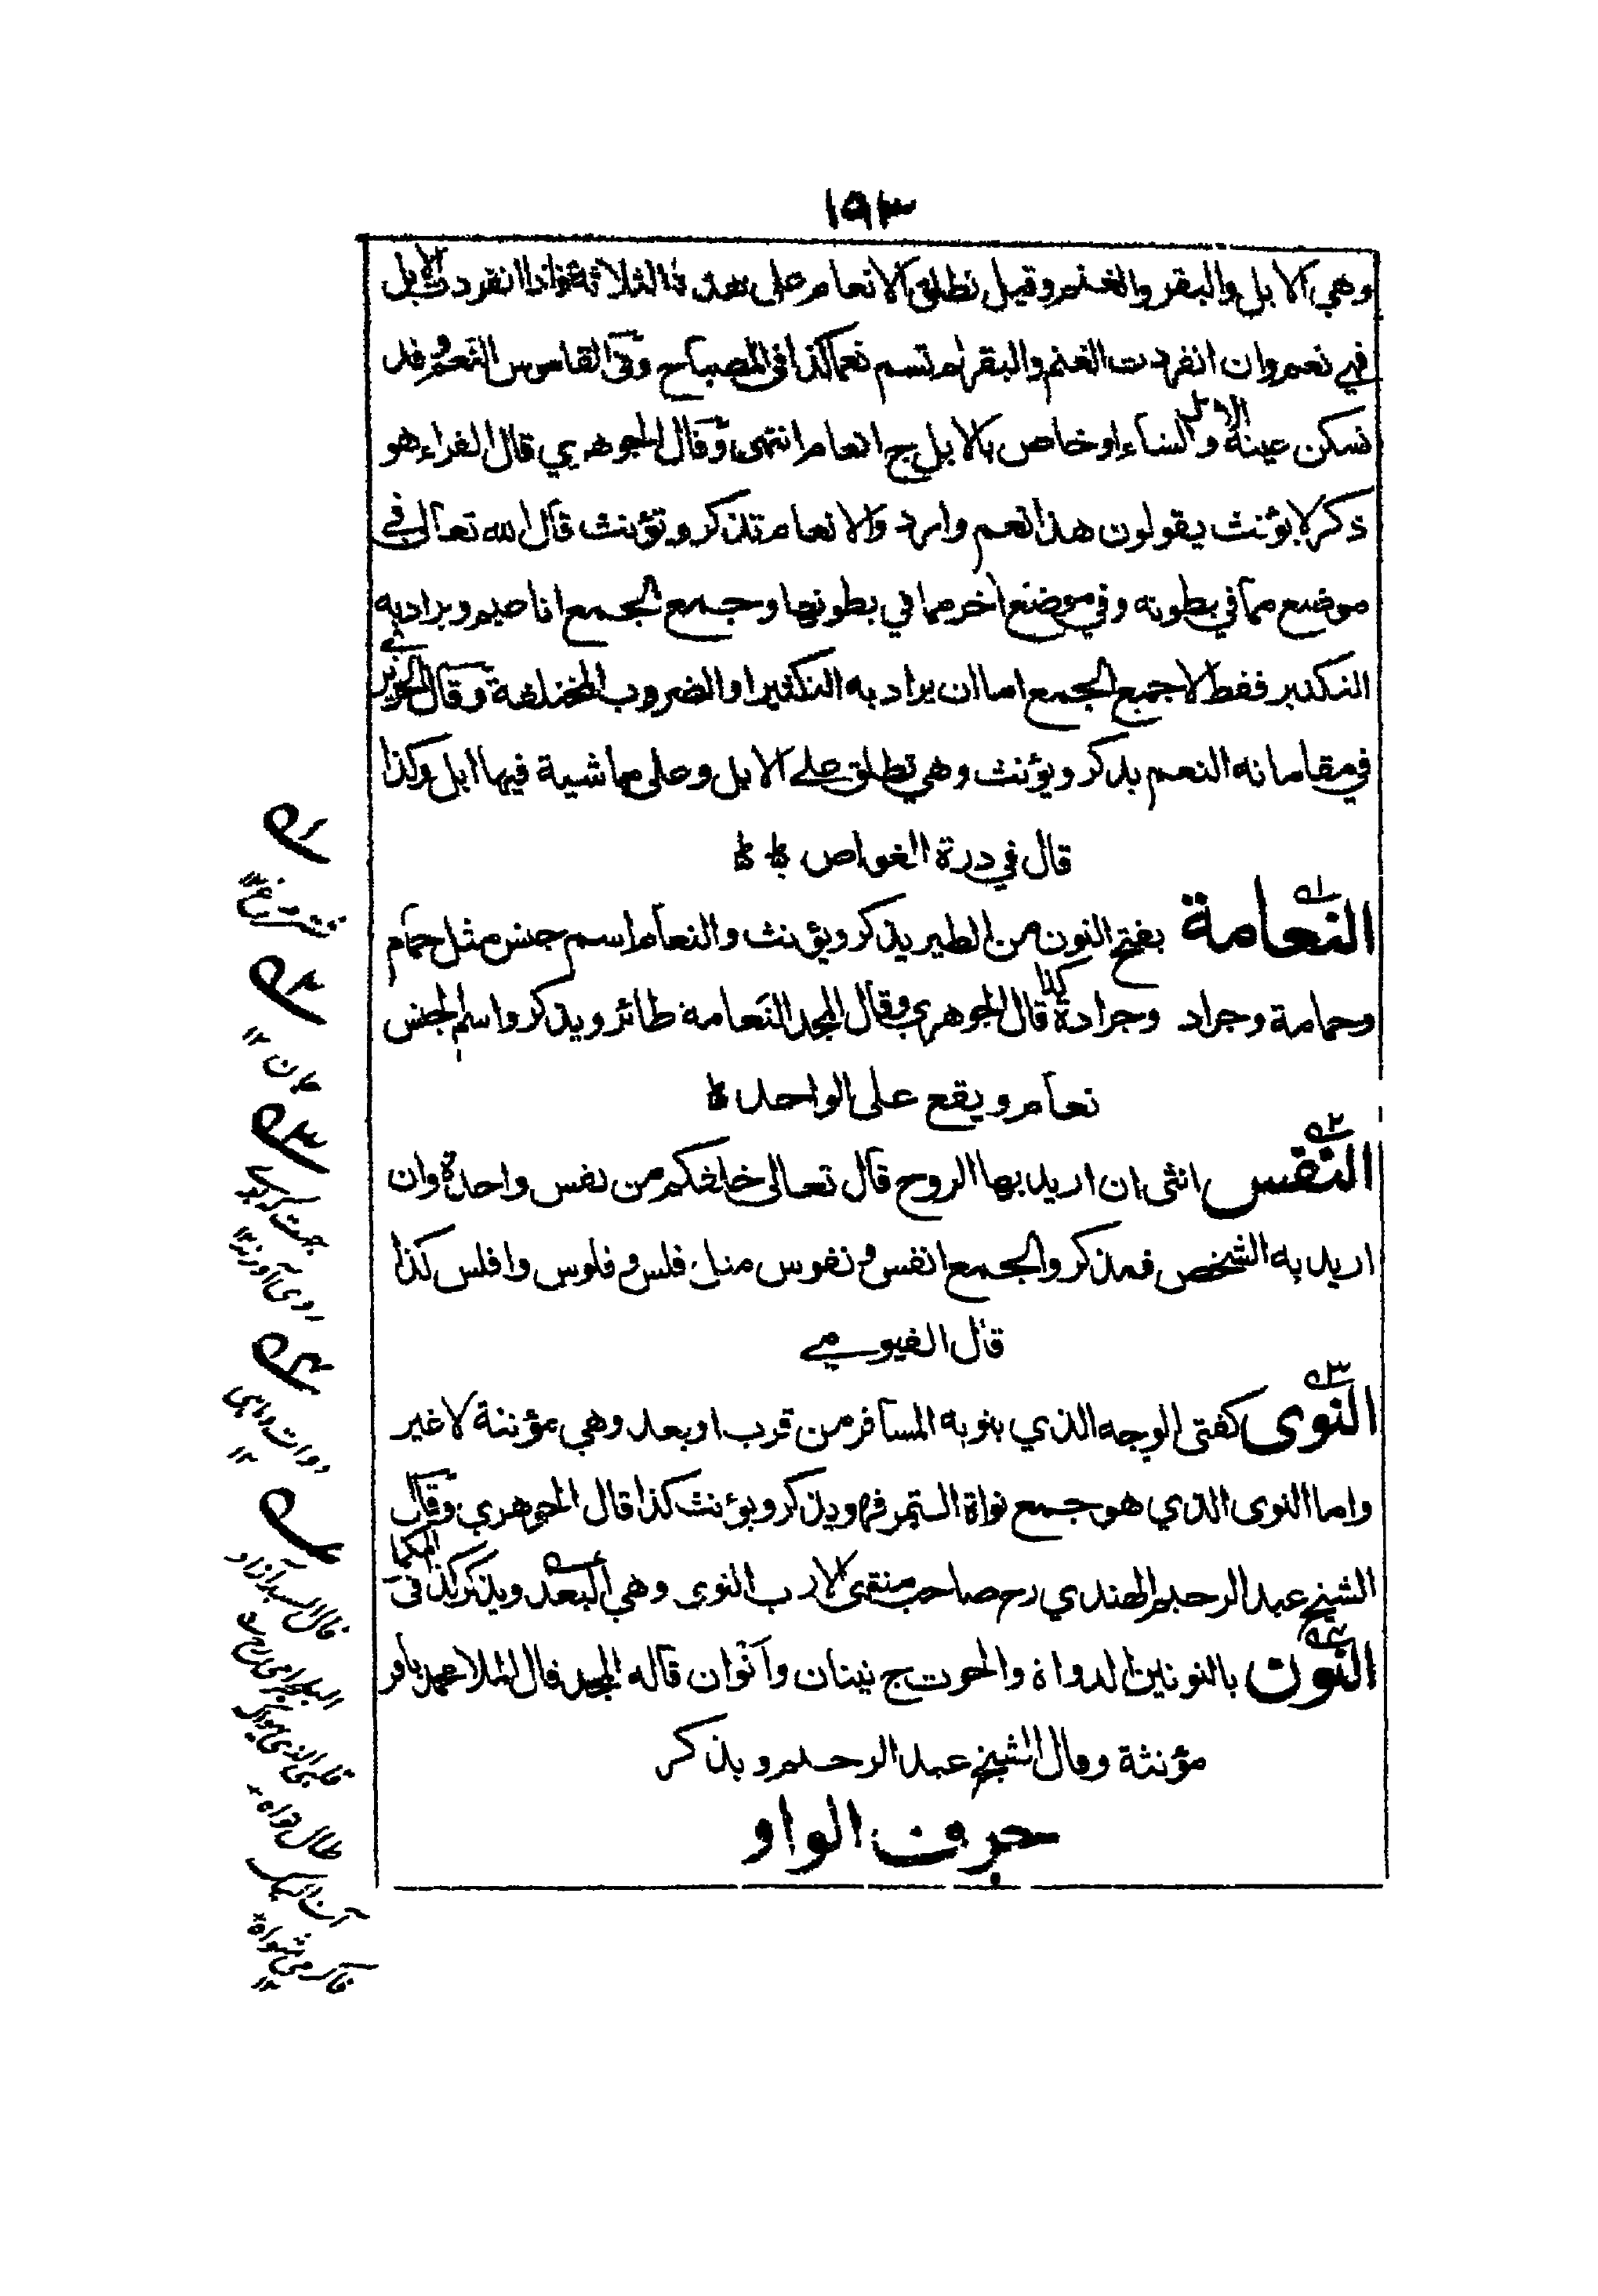 ١٩٣
وهي الابل والبقر والغنم وقيل تطلق الانعام على هذه الثلاثة فاذا انفردت الابل
فهي نعم وان انفردت الغنم والبقر لم تسم نعما كذا في المصباح وفي القاموس النعم وقد
تسكن عينه الابل والشاء او خاص بالابل ج انعام انتهى وقال الجوهري قال الفراء هو
ذكر لا يؤنث يقولون هذا نعم وارد والانعام تذكر وتؤنث قال الله تعالى في
موضع مما في بطونه وفي موضع اخر مما في بطونها وجمع الجمع اناعيم ويراد به
التكثير فقط لا جمع الجمع اما ان يراد به التكثير او الضروب المختلفة وقال الحريري
في مقاماته النعم يذكر ويؤنث وهي تطلق على الابل وعلى ماشية فيها ابل وكذا
قال في درة الغواص
النعامة بفتح النون من الطير يذكر ويؤنث والنعام اسم جنس مثل حمام
وحمامة وجراد وجرادة كذا قال الجوهري وقال المجد النعامة طائر ويذكر واسم الجنس
نعام ويقع على الواحد
النفس انثى ان اريد بها الروح قال تعالى خلقكم من نفس واحدة وان
اريد به الشخص فمذكر والجمع انفس ونفوس مثل فلس وفلوس وافلس كذا
قال الفيومي
النوى كفتى الوجه الذي ينويه المسافر من قرب او بعد وهي مؤنثة لا غير
واما النوى الذي هو جمع نواة التمر فهو يذكر ويؤنث كذا قال الجوهري وقال
الشيخ عبد الرحيم الهندي رح صاحب منتهى الارب النوى وهي البعد ويذكر كذا في
النون بالنونين الدواة والحوت ج نينان وانوان قاله المجد قال الملا محمد باقر
مؤنثة وقال الشيخ عبد الرحيم ويذكر
حرف الواو
١
شتر مرغ ١٢
٢
جان ١٢
٣
٤
دوات وماهى
١٢
قال السيد آزاد